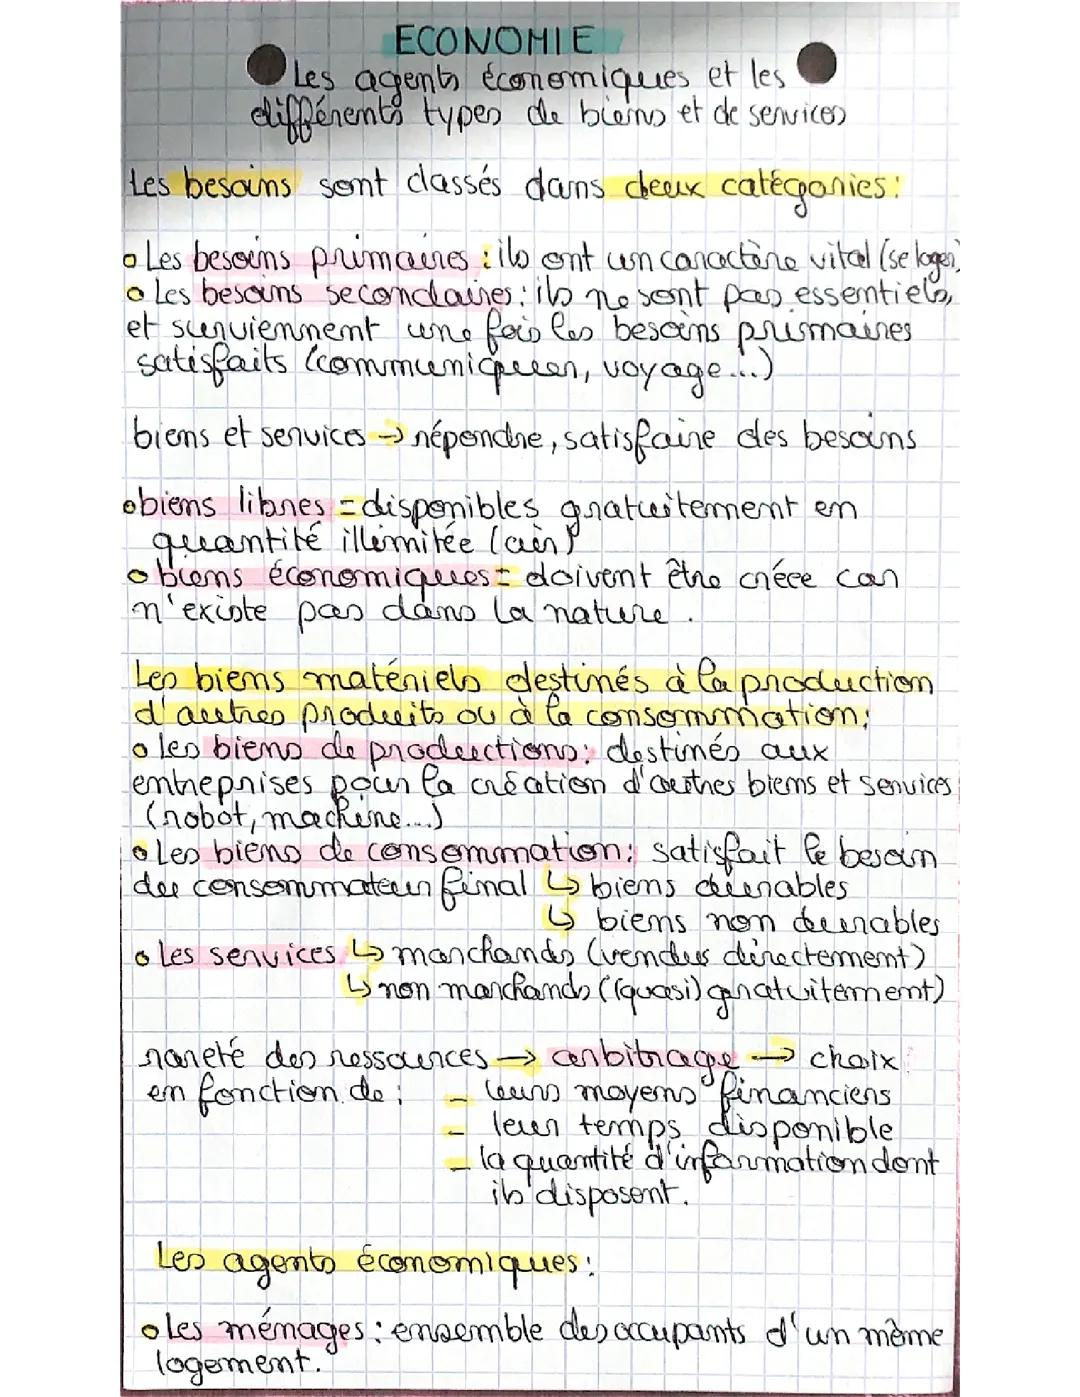 ECONOMIE
Les agents économiques et les
différents types de biens et de services
Les besoins sont classés dans deux catégories:
Les besoins primaires : ils ont un caractère vital (se loger)
Les besoins secondaires : ils ne sont pas essentiels,
et surviennent une fois les besoins primaires
satisfaits (communiquer, voyage...)
biens et services → répondre, satisfaire des besoins
biens libres = disponibles gratuitement en
quantité illimitée (air)
biens économiques = doivent être créee car
n'existe pas dans la nature.
Les biens matériels destinés à la production
d'autres produits ou à la consommation:
Les biens de productions: destinés aux
entreprises pour la création d'autres biens et services
(robot, machine...)
Les biens de consommation: satisfait le besoin
du consommateur final ↳ biens durables
↳ biens non durables
Les services ↳ marchands (vendus directement)
↳ non marchands ((quasi) gratuitement)
rareté des ressources → arbitrage → choix
en fonction de : - leurs moyens financiers
- leur temps disponible
- la quantité d'information dont
ils disposent.
Les agents économiques:
Les ménages : ensemble des occupants d'un même
logement.